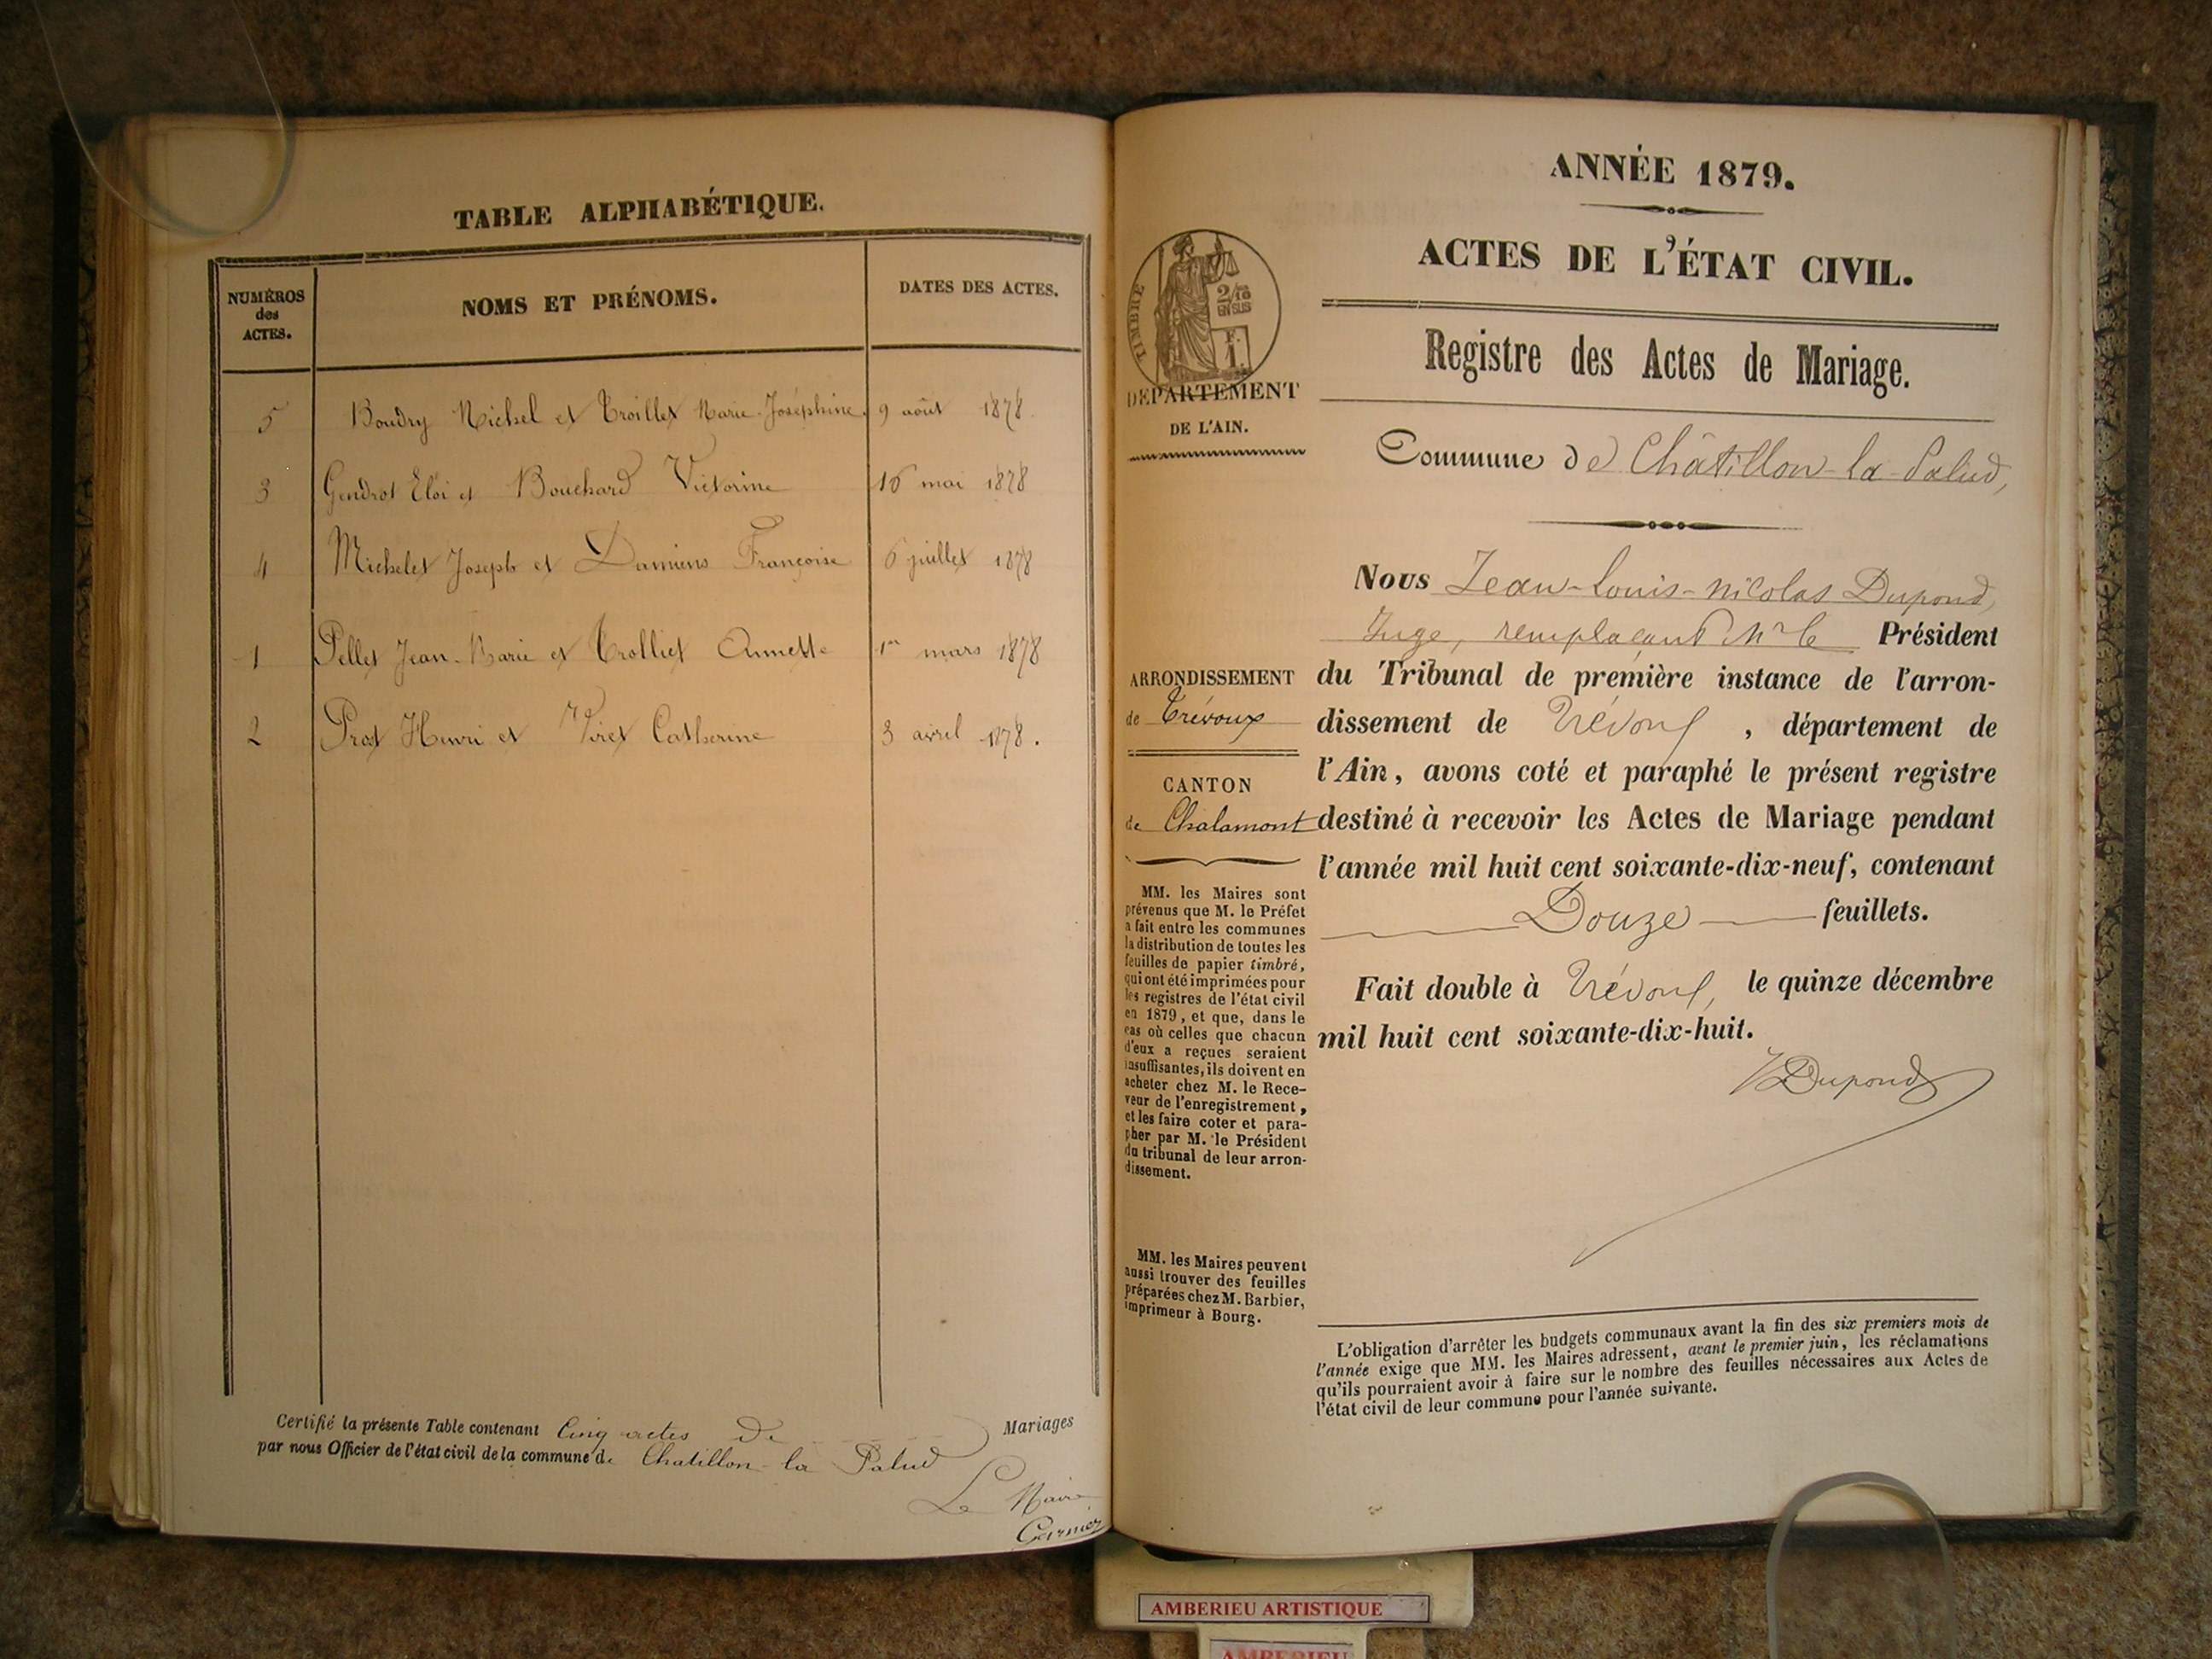 TABLE ALPHABÉTIQUE.
NUMÉROS
des
ACTES.
NOMS ET PRÉNOMS.
DATES DES ACTES.
5 Boudry Michel et Troillet Marie-Joséphine 9 août 1878.
3 Gendrot Eloi et Bouchard Victorine 16 mai 1878
4 Michelet Joseph et Damiens Françoise 6 juillet 1878
1 Pellet Jean-Marie et Trolliet Annette 1er mars 1878
2 Prost Henri et Viret Catherine 3 avril 1878.
Certifié la présente Table contenant Cinq actes de Mariages
par nous Officier de l'état civil de la commune de Chatillon la Palud
Le Maire
Garnier
ANNÉE 1879.
ACTES DE L'ÉTAT CIVIL.
TIMBRE
2/10
EN SUS
1 F.
DÉPARTEMENT
DE L'AIN.
Registre des Actes de Mariage.
Commune de Châtillon-la-Palud,
Nous Jean-Louis-Nicolas Dupond,
Juge, remplaçant Mr le Président
du Tribunal de première instance de l'arron-
dissement de Trévoux, département de
l'Ain, avons coté et paraphé le présent registre
destiné à recevoir les Actes de Mariage pendant
l'année mil huit cent soixante-dix-neuf, contenant
Douze feuillets.
Fait double à Trévoux, le quinze décembre
mil huit cent soixante-dix-huit.
Dupond
ARRONDISSEMENT
de Trévoux
CANTON
de Chalamont
MM. les Maires sont
prévenus que M. le Préfet
a fait entre les communes
la distribution de toutes les
feuilles de papier timbré,
qui ont été imprimées pour
les registres de l'état civil
en 1879, et que, dans le
cas où celles que chacun
d'eux a reçues seraient
insuffisantes, ils doivent en
acheter chez M. le Rece-
veur de l'enregistrement,
et les faire coter et para-
pher par M. le Président
du tribunal de leur arron-
dissement.
MM. les Maires peuvent
aussi trouver des feuilles
préparées chez M. Barbier,
imprimeur à Bourg.
L'obligation d'arrêter les budgets communaux avant la fin des six premiers mois de
l'année exige que MM. les Maires adressent, avant le premier juin, les réclamations
qu'ils pourraient avoir à faire sur le nombre des feuilles nécessaires aux Actes de
l'état civil de leur commune pour l'année suivante.
AMBERIEU ARTISTIQUE
AMBERIEU